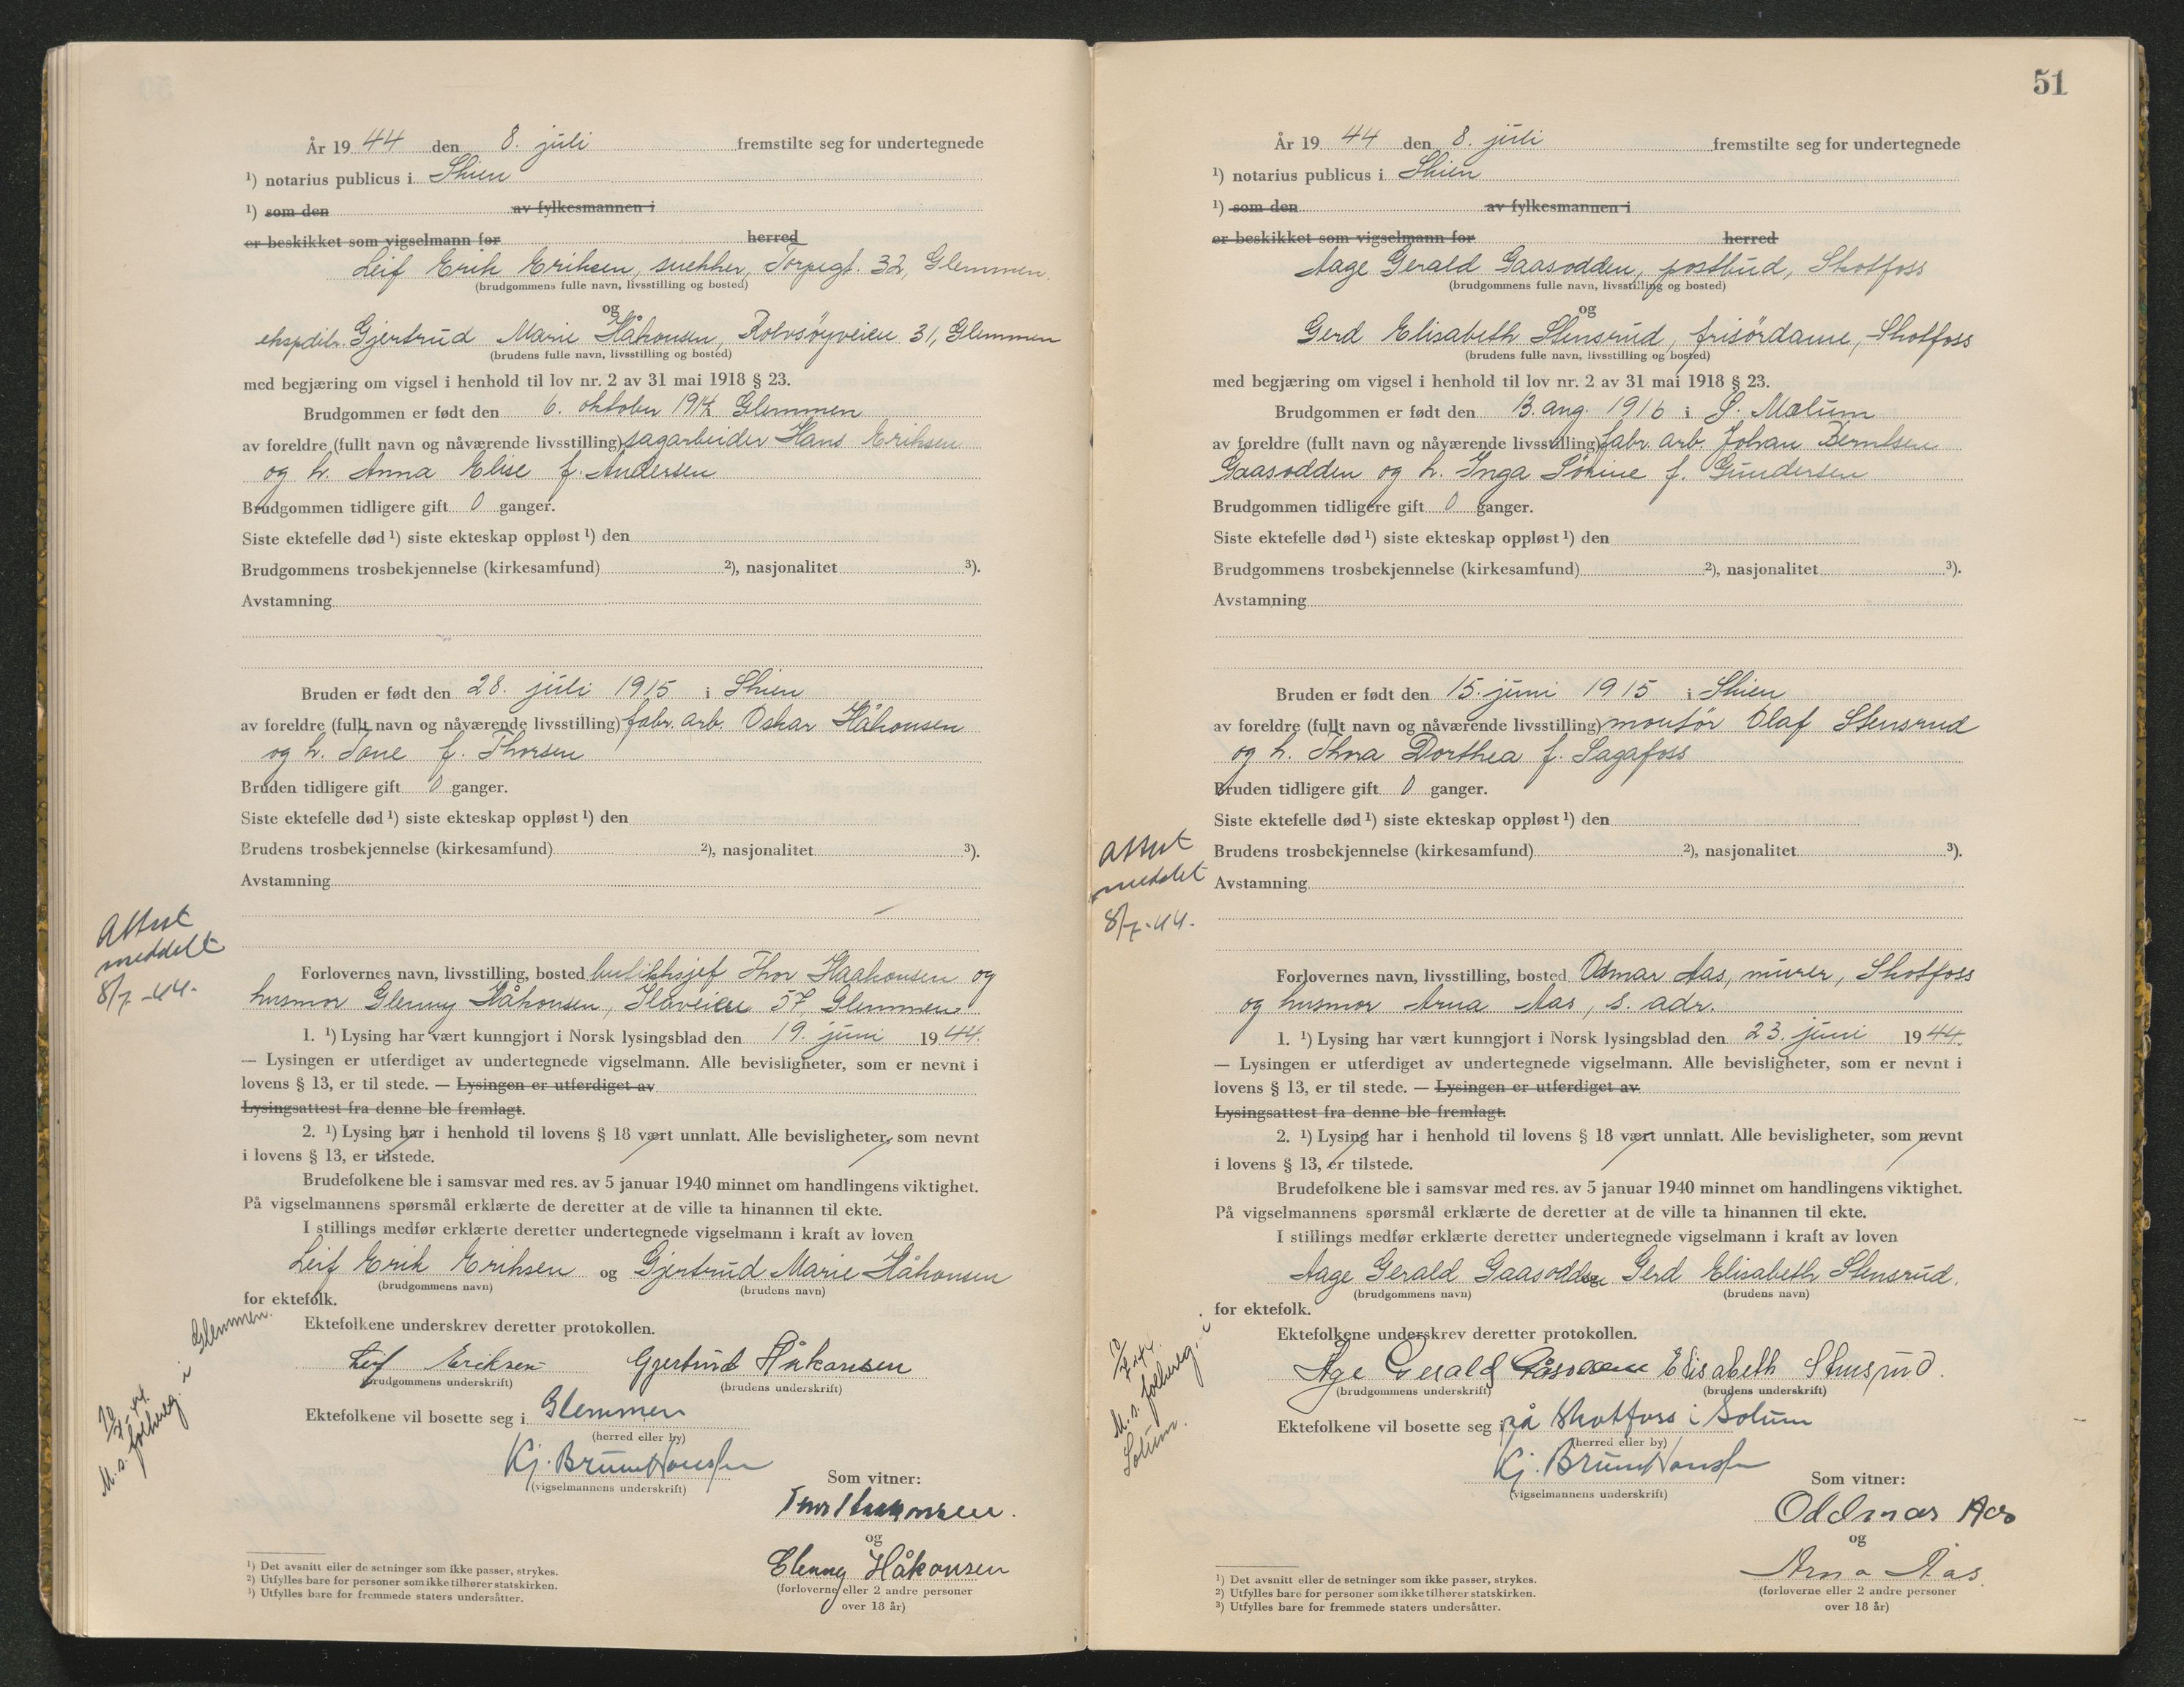 År 19 44 den 8. juli fremstilte seg for undertegnede
¹) notarius publicus i Skien
¹) som den av fylkesmannen i
er beskikket som vigselmann for herred
Leif Erik Eriksen, snekker, Torpegt. 32, Glemmen.
(brudgommens fulle navn, livsstilling og bosted)
og
ekspditr. Gjertrud Marie Håkonsen, Rolvsøyveien 31, Glemmen
(brudens fulle navn, livsstilling og bosted)
med begjæring om vigsel i henhold til lov nr. 2 av 31 mai 1918 § 23.
Brudgommen er født den 6. oktober 1914 Glemmen
av foreldre (fullt navn og nåværende livsstilling) sagarbeider Hans Eriksen
og h. Anna Elise f. Andersen
Brudgommen tidligere gift 0 ganger.
Siste ektefelle død ¹) siste ekteskap oppløst ¹) den
Brudgommens trosbekjennelse (kirkesamfund) ²), nasjonalitet ³).
Avstamning
Bruden er født den 28. juli 1915 i Skien
av foreldre (fullt navn og nåværende livsstilling) fabr. arb. Oskar Håkonsen
og h. Tone f. Thorsen
Bruden tidligere gift 0 ganger.
Siste ektefelle død ¹) siste ekteskap oppløst ¹) den
Brudens trosbekjennelse (kirkesamfund) ²), nasjonalitet ³).
Avstamning
Attest
meddelt
8/7-44.
Forlovernes navn, livsstilling, bosted butikksjef Thor Haakonsen og
husmor Glenny Håkonsen, 57, Glemmen
1. ¹) Lysing har vært kunngjort i Norsk lysingsblad den 19. juni 1944.
— Lysingen er utferdiget av undertegnede vigselmann. Alle bevisligheter, som er nevnt i
lovens § 13, er til stede. — Lysingen er utferdiget av
Lysingsattest fra denne ble fremlagt.
2. ¹) Lysing har i henhold til lovens § 18 vært unnlatt. Alle bevisligheter, som nevnt
i lovens § 13, er tilstede.
Brudefolkene ble i samsvar med res. av 5 januar 1940 minnet om handlingens viktighet.
På vigselmannens spørsmål erklærte de deretter at de ville ta hinannen til ekte.
I stillings medfør erklærte deretter undertegnede vigselmann i kraft av loven
Leif Erik Eriksen og Gjertrud Marie Håkonsen
(brudgommens navn) (brudens navn)
for ektefolk.
Ektefolkene underskrev deretter protokollen.
Leif Eriksen Gjertrud Håkonsen
(brudgommens underskrift) (brudens underskrift)
Ektefolkene vil bosette seg i Glemmen
(herred eller by)
Kj. Bruun Hansen
(vigselmannens underskrift)
Som vitner:
Thor Haakonsen.
og
Glenny Håkonsen
(forloverne eller 2 andre personer
over 18 år)
10/7-44.
M. s. folkereg. i Glemmen.
¹) Det avsnitt eller de setninger som ikke passer, strykes.
²) Utfylles bare for personer som ikke tilhører statskirken.
³) Utfylles bare for fremmede staters undersåtter.
51
År 19 44 den 8. juli fremstilte seg for undertegnede
¹) notarius publicus i Skien
¹) som den av fylkesmannen i
er beskikket som vigselmann for herred
Aage Gerald Gaasodden, postbud, Skotfoss
(brudgommens fulle navn, livsstilling og bosted)
og
Gerd Elisabeth Stensrud, frisördame, Skotfoss
(brudens fulle navn, livsstilling og bosted)
med begjæring om vigsel i henhold til lov nr. 2 av 31 mai 1918 § 23.
Brudgommen er født den 13. aug. 1916 i S. Mælum
av foreldre (fullt navn og nåværende livsstilling) fabr. arb. Johan Berntsen
Gaasodden og h. Inga Sörine f. Gundersen
Brudgommen tidligere gift 0 ganger.
Siste ektefelle død ¹) siste ekteskap oppløst ¹) den
Brudgommens trosbekjennelse (kirkesamfund) ²), nasjonalitet ³).
Avstamning
Bruden er født den 15. juni 1915 i Skien
av foreldre (fullt navn og nåværende livsstilling) montör Olaf Stensrud
og h. Thora Dorthea f. Sagafoss
Bruden tidligere gift 0 ganger.
Siste ektefelle død ¹) siste ekteskap oppløst ¹) den
Brudens trosbekjennelse (kirkesamfund) ²), nasjonalitet ³).
Avstamning
Attest
meddelt
8/7-44.
Forlovernes navn, livsstilling, bosted Odmar Aas, murer, Skotfoss
og husmor Arna Aas, s. adr.
1. ¹) Lysing har vært kunngjort i Norsk lysingsblad den 23. juni 1944.
— Lysingen er utferdiget av undertegnede vigselmann. Alle bevisligheter, som er nevnt i
lovens § 13, er til stede. — Lysingen er utferdiget av
Lysingsattest fra denne ble fremlagt.
2. ¹) Lysing har i henhold til lovens § 18 vært unnlatt. Alle bevisligheter, som nevnt
i lovens § 13, er tilstede.
Brudefolkene ble i samsvar med res. av 5 januar 1940 minnet om handlingens viktighet.
På vigselmannens spørsmål erklærte de deretter at de ville ta hinannen til ekte.
I stillings medfør erklærte deretter undertegnede vigselmann i kraft av loven
Aage Gerald Gaasodden og Gerd Elisabeth Stensrud.
(brudgommens navn) (brudens navn)
for ektefolk.
Ektefolkene underskrev deretter protokollen.
Åge Gerald Gåsodden Elisabeth Stensrud.
(brudgommens underskrift) (brudens underskrift)
Ektefolkene vil bosette seg i på Skotfoss i Solum
(herred eller by)
Kj. Bruun Hansen
(vigselmannens underskrift)
Som vitner:
Oddmar Aas
og
Arna Aas.
(forloverne eller 2 andre personer
over 18 år)
10/7-44.
M. s. folkereg. i
Solum.
¹) Det avsnitt eller de setninger som ikke passer, strykes.
²) Utfylles bare for personer som ikke tilhører statskirken.
³) Utfylles bare for fremmede staters undersåtter.